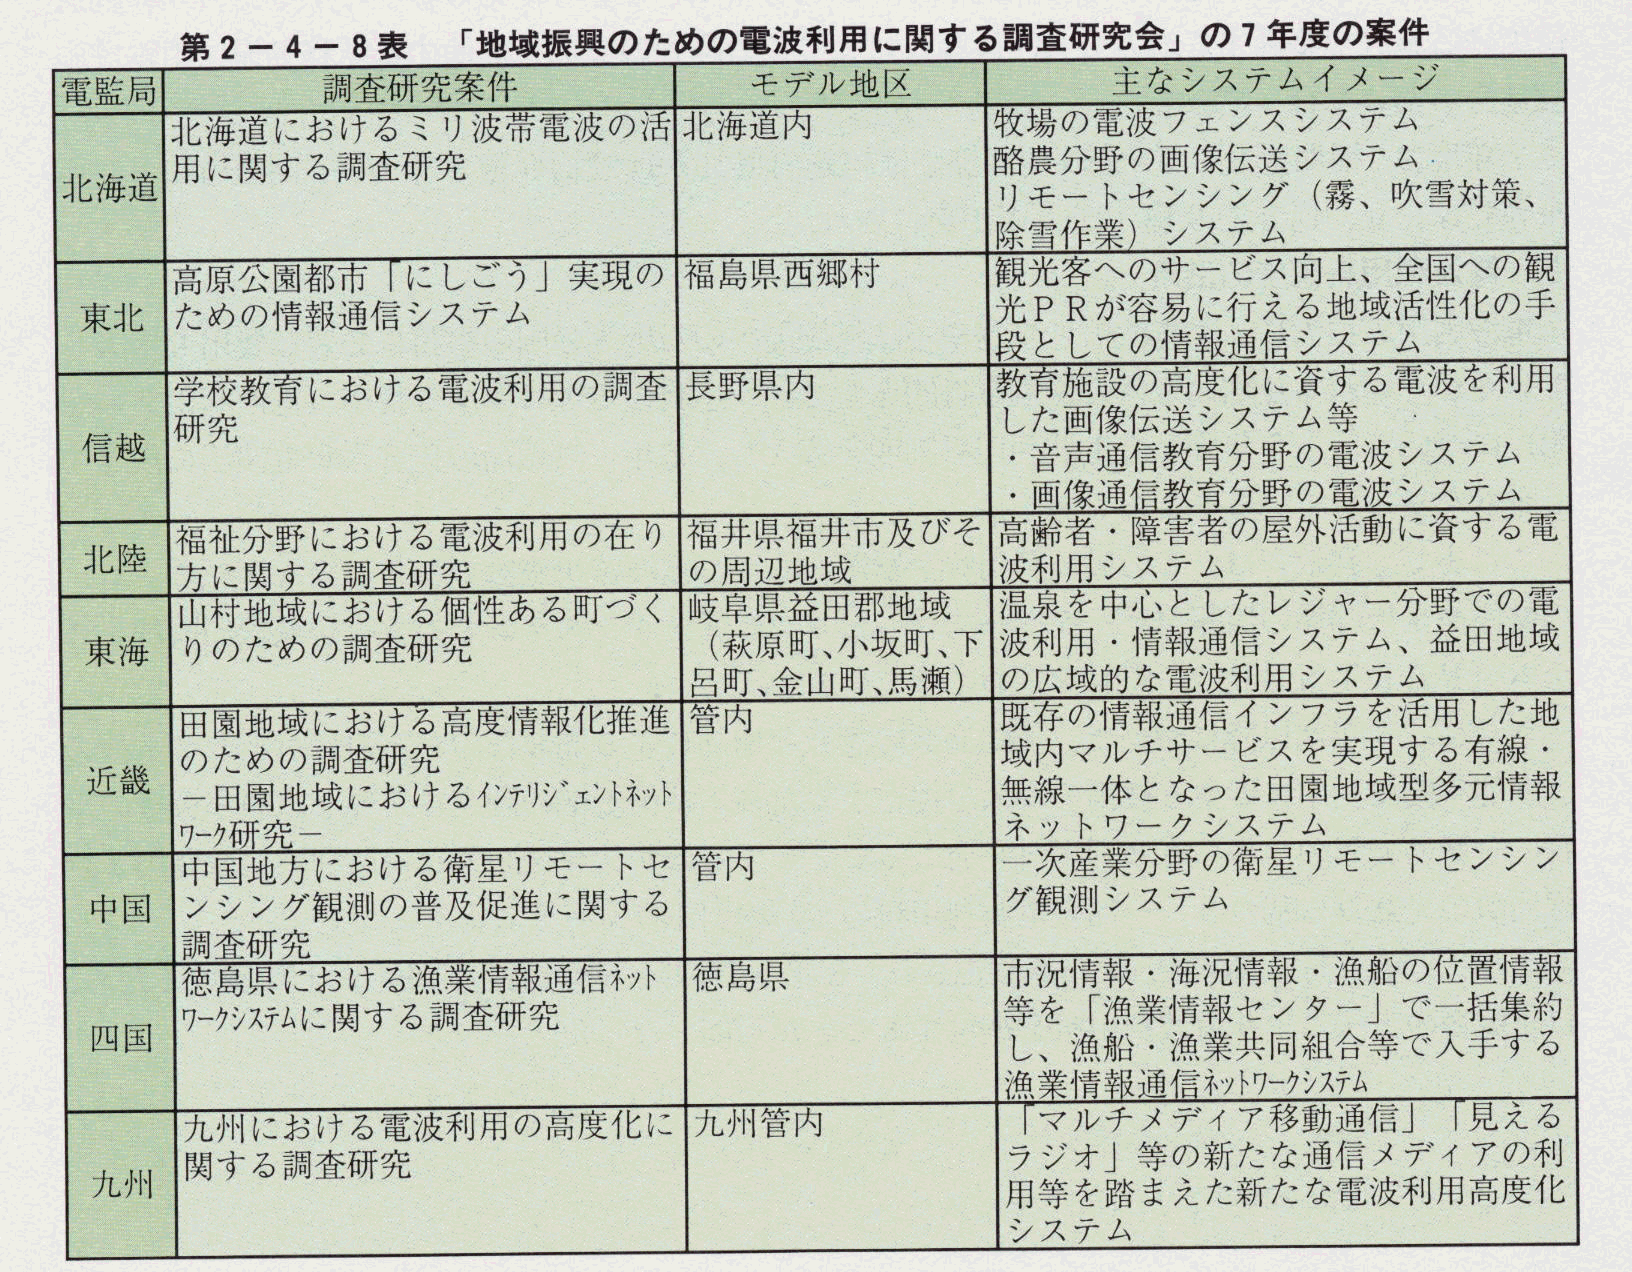 第2－4－8表　「地域振興のための電波利用に関する調査研究会」の7年度の案件
電監局　調査研究案件　モデル地区　主なシステムイメージ
北海道
北海道におけるミリ波帯電波の活
用に関する調査研究
北海道内
牧場の電波フェンスシステム
酪農分野の画像伝送システム
リモートセンシング（霧、吹雪対策、
除雪作業）システム
東北
高原公園都市「にしごう」実現の
ための情報通信システム
福島県西郷村
観光客へのサービス向上、全国への観
光ＰＲが容易に行える地域活性化の手
段としての情報通信システム
信越
学校教育における電波利用の調査
研究
長野県内
教育施設の高度化に資する電波を利用
した画像伝送システム等
・音声通信教育分野の電波システム
・画像通信教育分野の電波システム
北陸
福祉分野における電波利用の在り
方に関する調査研究
福井県福井市及びそ
の周辺地域
高齢者・障害者の屋外活動に資する電
波利用システム
東海
山村地域における個性ある町づく
りのための調査研究
岐阜県益田郡地域
（萩原町、小坂町、下
呂町、金山町、馬瀬）
温泉を中心としたレジャー分野での電
波利用・情報通信システム、益田地域
の広域的な電波利用システム
近畿
田園地域における高度情報化推進
のための調査研究
－田園地域におけるｲﾝﾃﾘｼﾞｪﾝﾄﾈｯﾄ
ﾜｰｸ研究－
管内
既存の情報通信インフラを活用した地
域内マルチサービスを実現する有線・
無線一体となった田園地域型多元情報
ネットワークシステム
中国
中国地方における衛星リモートセ
ンシング観測の普及促進に関する
調査研究
管内
一次産業分野の衛星リモートセンシン
グ観測システム
四国
徳島県における漁業情報通信ﾈｯﾄ
ﾜｰｸｼｽﾃﾑに関する調査研究
徳島県
市況情報・海況情報・漁船の位置情報
等を「漁業情報センター」で一括集約
し、漁船・漁業共同組合等で入手する
漁業情報通信ﾈｯﾄﾜｰｸｼｽﾃﾑ
九州
九州における電波利用の高度化に
関する調査研究
九州管内
「マルチメディア移動通信」「見える
ラジオ」等の新たな通信メディアの利
用等を踏まえた新たな電波利用高度化
システム